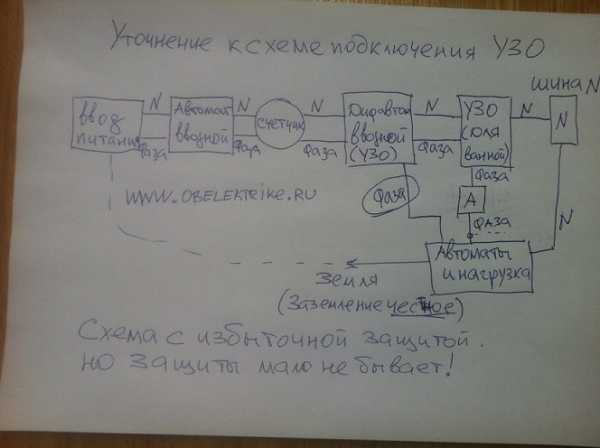 Уточнение к схеме подключения УЗО
шина N
ввод питания
N
фаза
Автомат вводной
N
Фаза
счетчик
N
фаза
Дифавтомат вводной (УЗО)
N
фаза
УЗО (для ванной)
N
N
Фаза
А
ФАЗА
Фаза
N
WWW.OBELEKTRIKE.RU
Автоматы и нагрузка
Земля
(Заземление честное)
Схема с избыточной защитой.
но защиты мало не бывает!